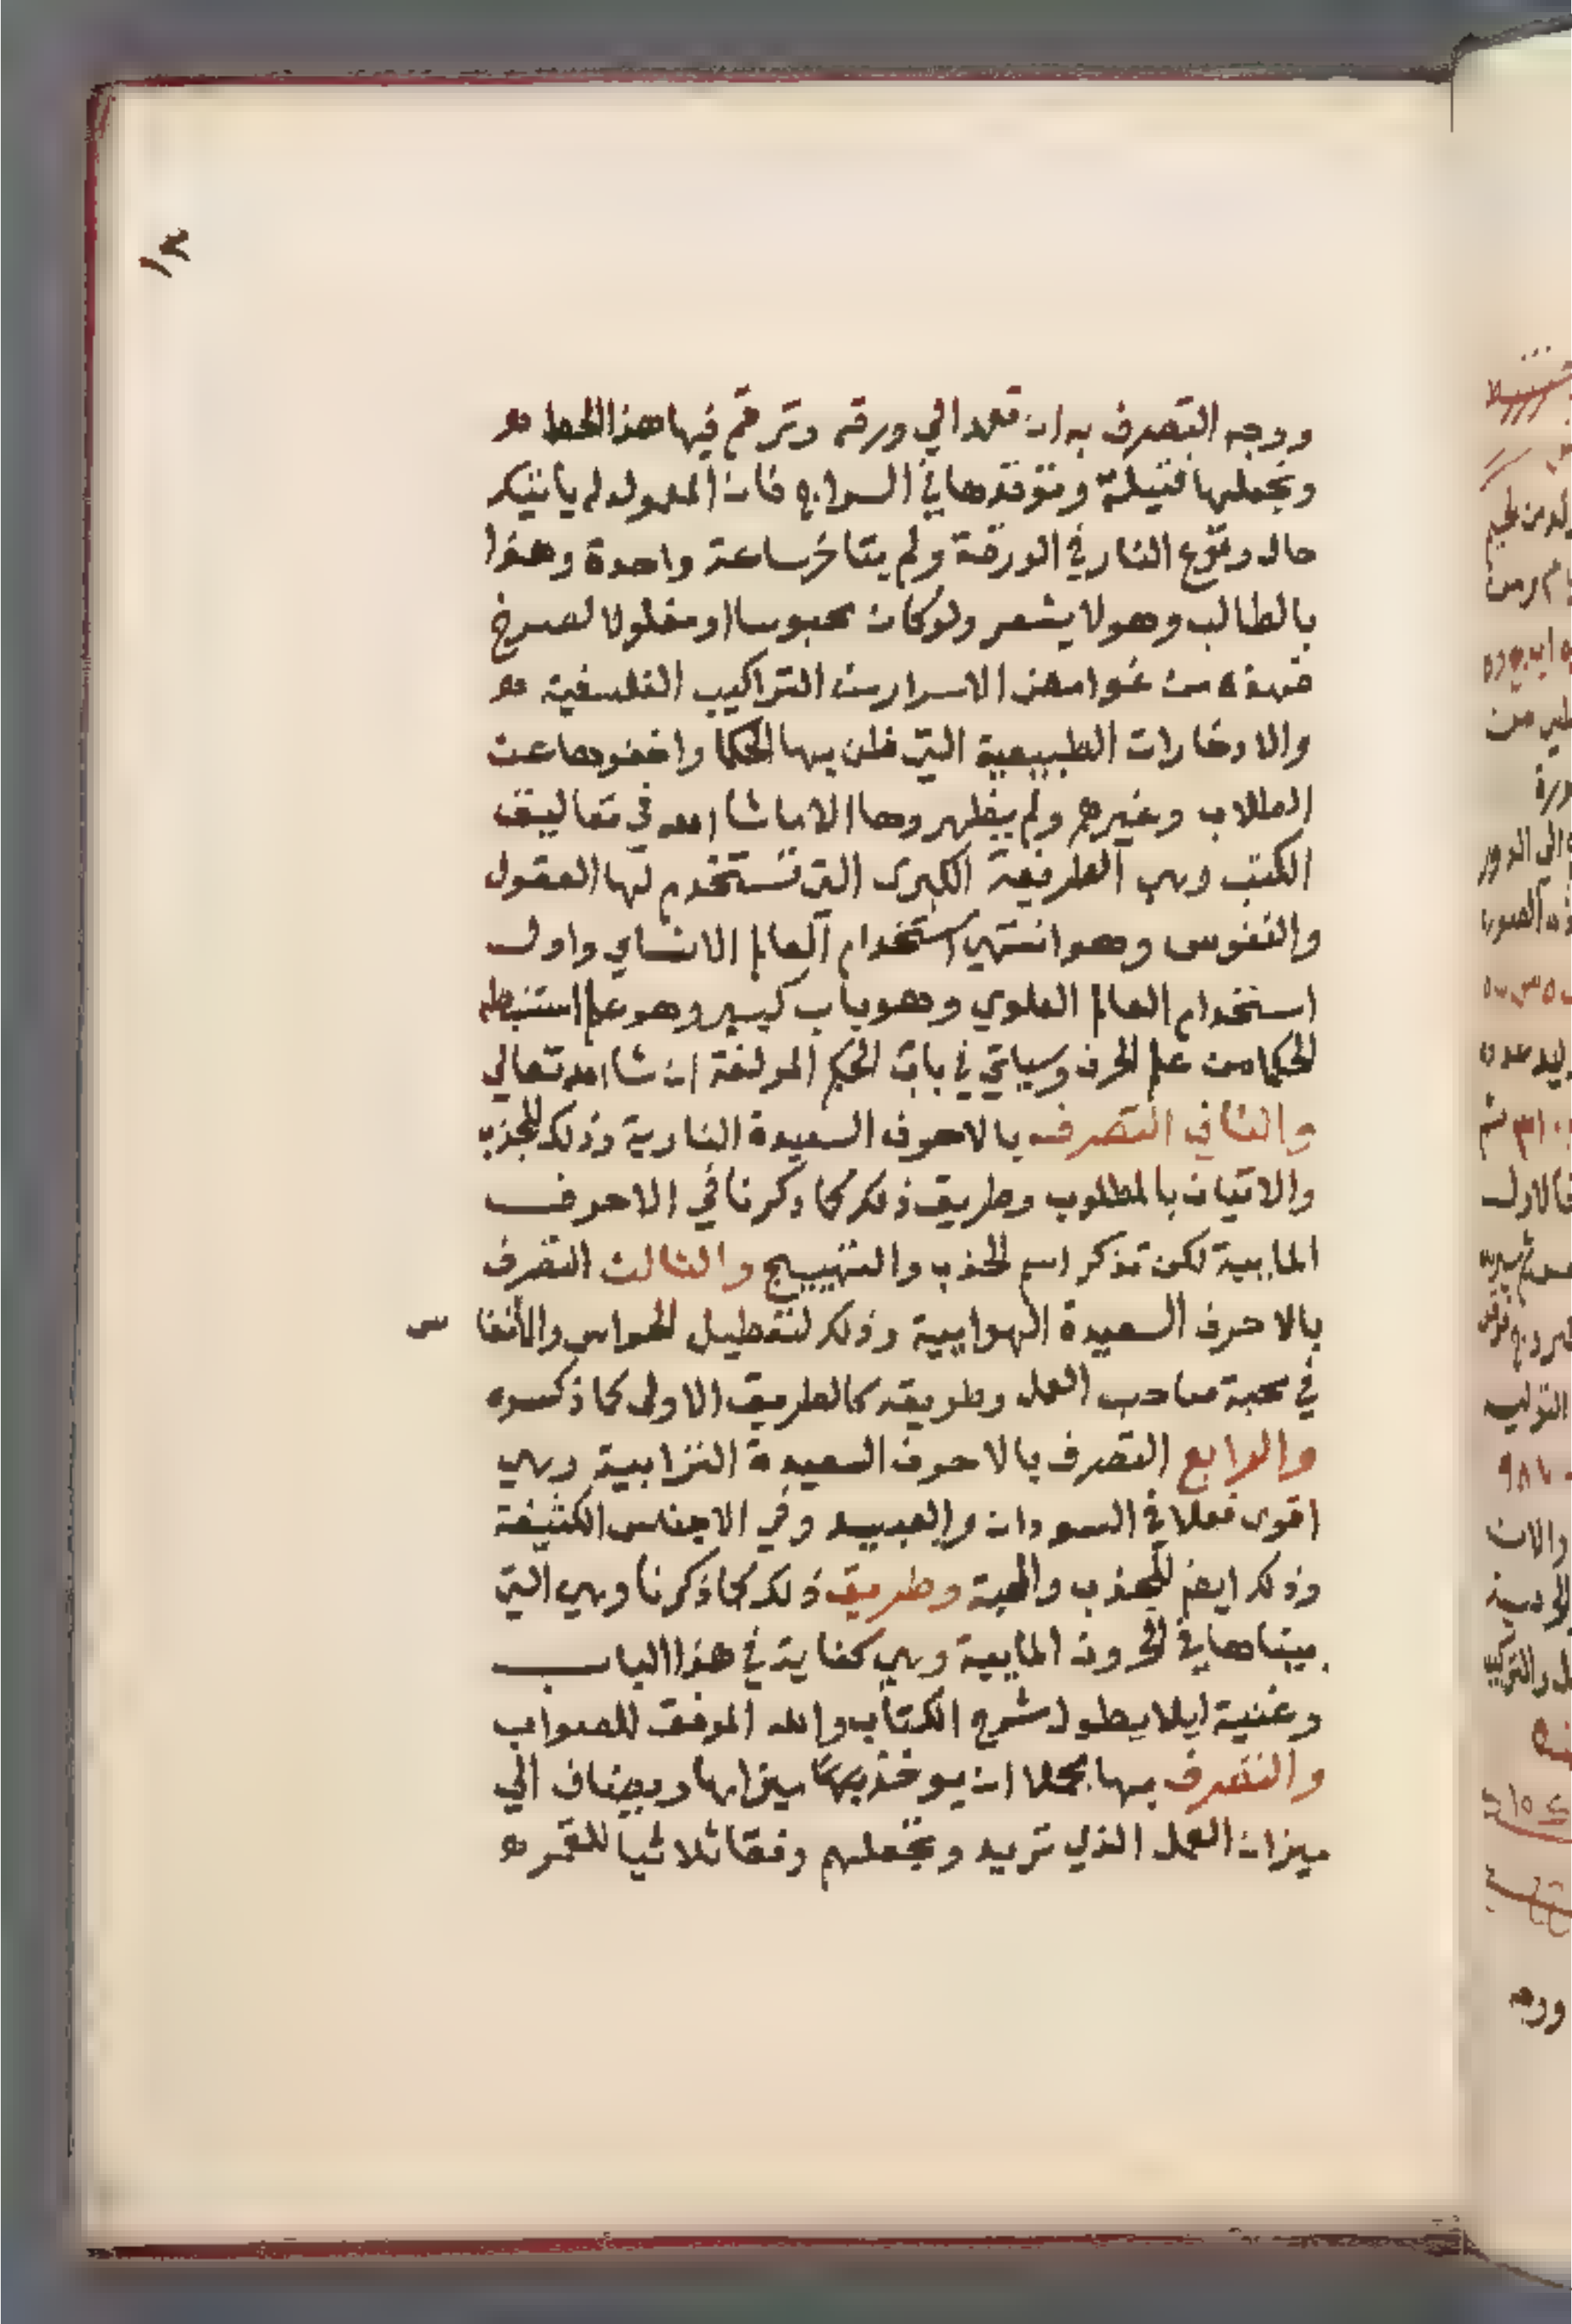 ١٣
ووجه التصرف به ان تعمد الي ورقة وترقم فيها هذا الخط
وتجعلها فتيلة وتوقدها في السراج فان المعمول له ياتيك
حال وقوع النار في الورقة ولم يتاخر ساعة واحدة وهذا
بالطالب وهو لا يشعر ولو كان محبوسا او مغلولا لصرخ
فهذه من غوامض الاسرار من التراكيب الفلسفية
والادخارات الطبيعية التي ظن بها الحكما واخفوها عن
الطلاب وغيرهم ولم يظهروها الا ما شا الله في تعاليق
الكتب وهي الطريقة الكبرى التي تستخدم لها العقول
والنفوس وهو انتهي استخدام العالم الانساي واول
استخدام العالم العلوي وهو باب كبير وهو علم استنبطه
الحكما من علم الحرف وسياتي في باب الحكم المولفة ان شا الله تعالي
والثاني التصرف بالاحرف السعيدة النارية وذلك للجذب
والاتيان بالمطلوب وطريق ذلك كما ذكرنا في الاحرف
المايية لكن تذكر اسم الجذب والتهييج والثالث التصرف
بالاحرف السعيدة الهوايية وذلك لتعطيل الحواس والانفاس
في محبة صاحب العمل وطريقه كالطريق الاولى كما ذكر
والرابع التصرف بالاحرف السعيدة الترابية وهي
اقوى فعلا في السودان والعبيد وفي الاجناس الكثيفة
وذلك ايضا للجذب والمحبة وطريق ذلك كما ذكرنا وهي التي
بيناها في الحروف المايية وهي كفاية في هذا الباب
وغنية ليلا يطول شرح الكتاب والله الموفق للصواب
والتصرف بها مجملا ان يوخذ ميزانها ويضاف الي
ميزان العمل الذي تريد وتجعلهم وفقا ثلاثيا للقمر